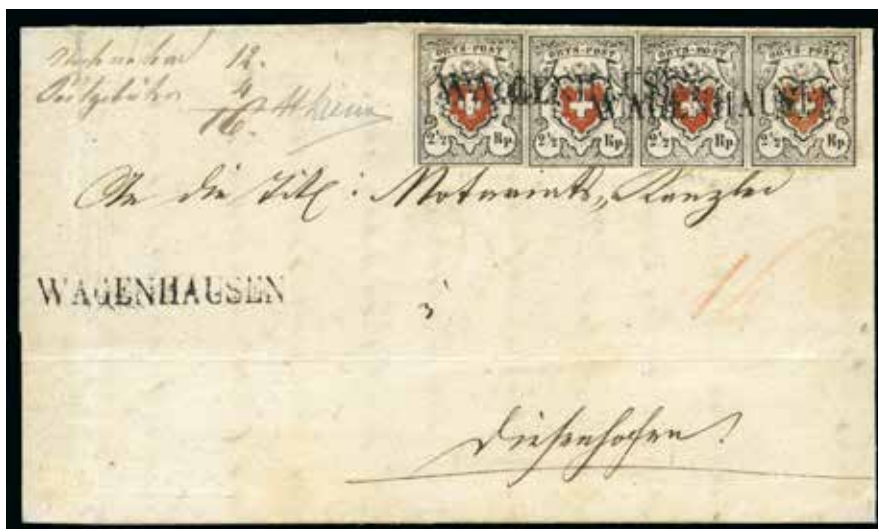 ORTS-POST ORTS-POST ORTS-POST ORTS-POST
WAGENHAUSEN
WAGENHAUSEN
2½ Rp. 2½ Rp. 2½ Rp. 2½ Rp.
12.
4
16.
An die Titl: Notariats-Kanzlei
WAGENHAUSEN
in
Diessenhofen.